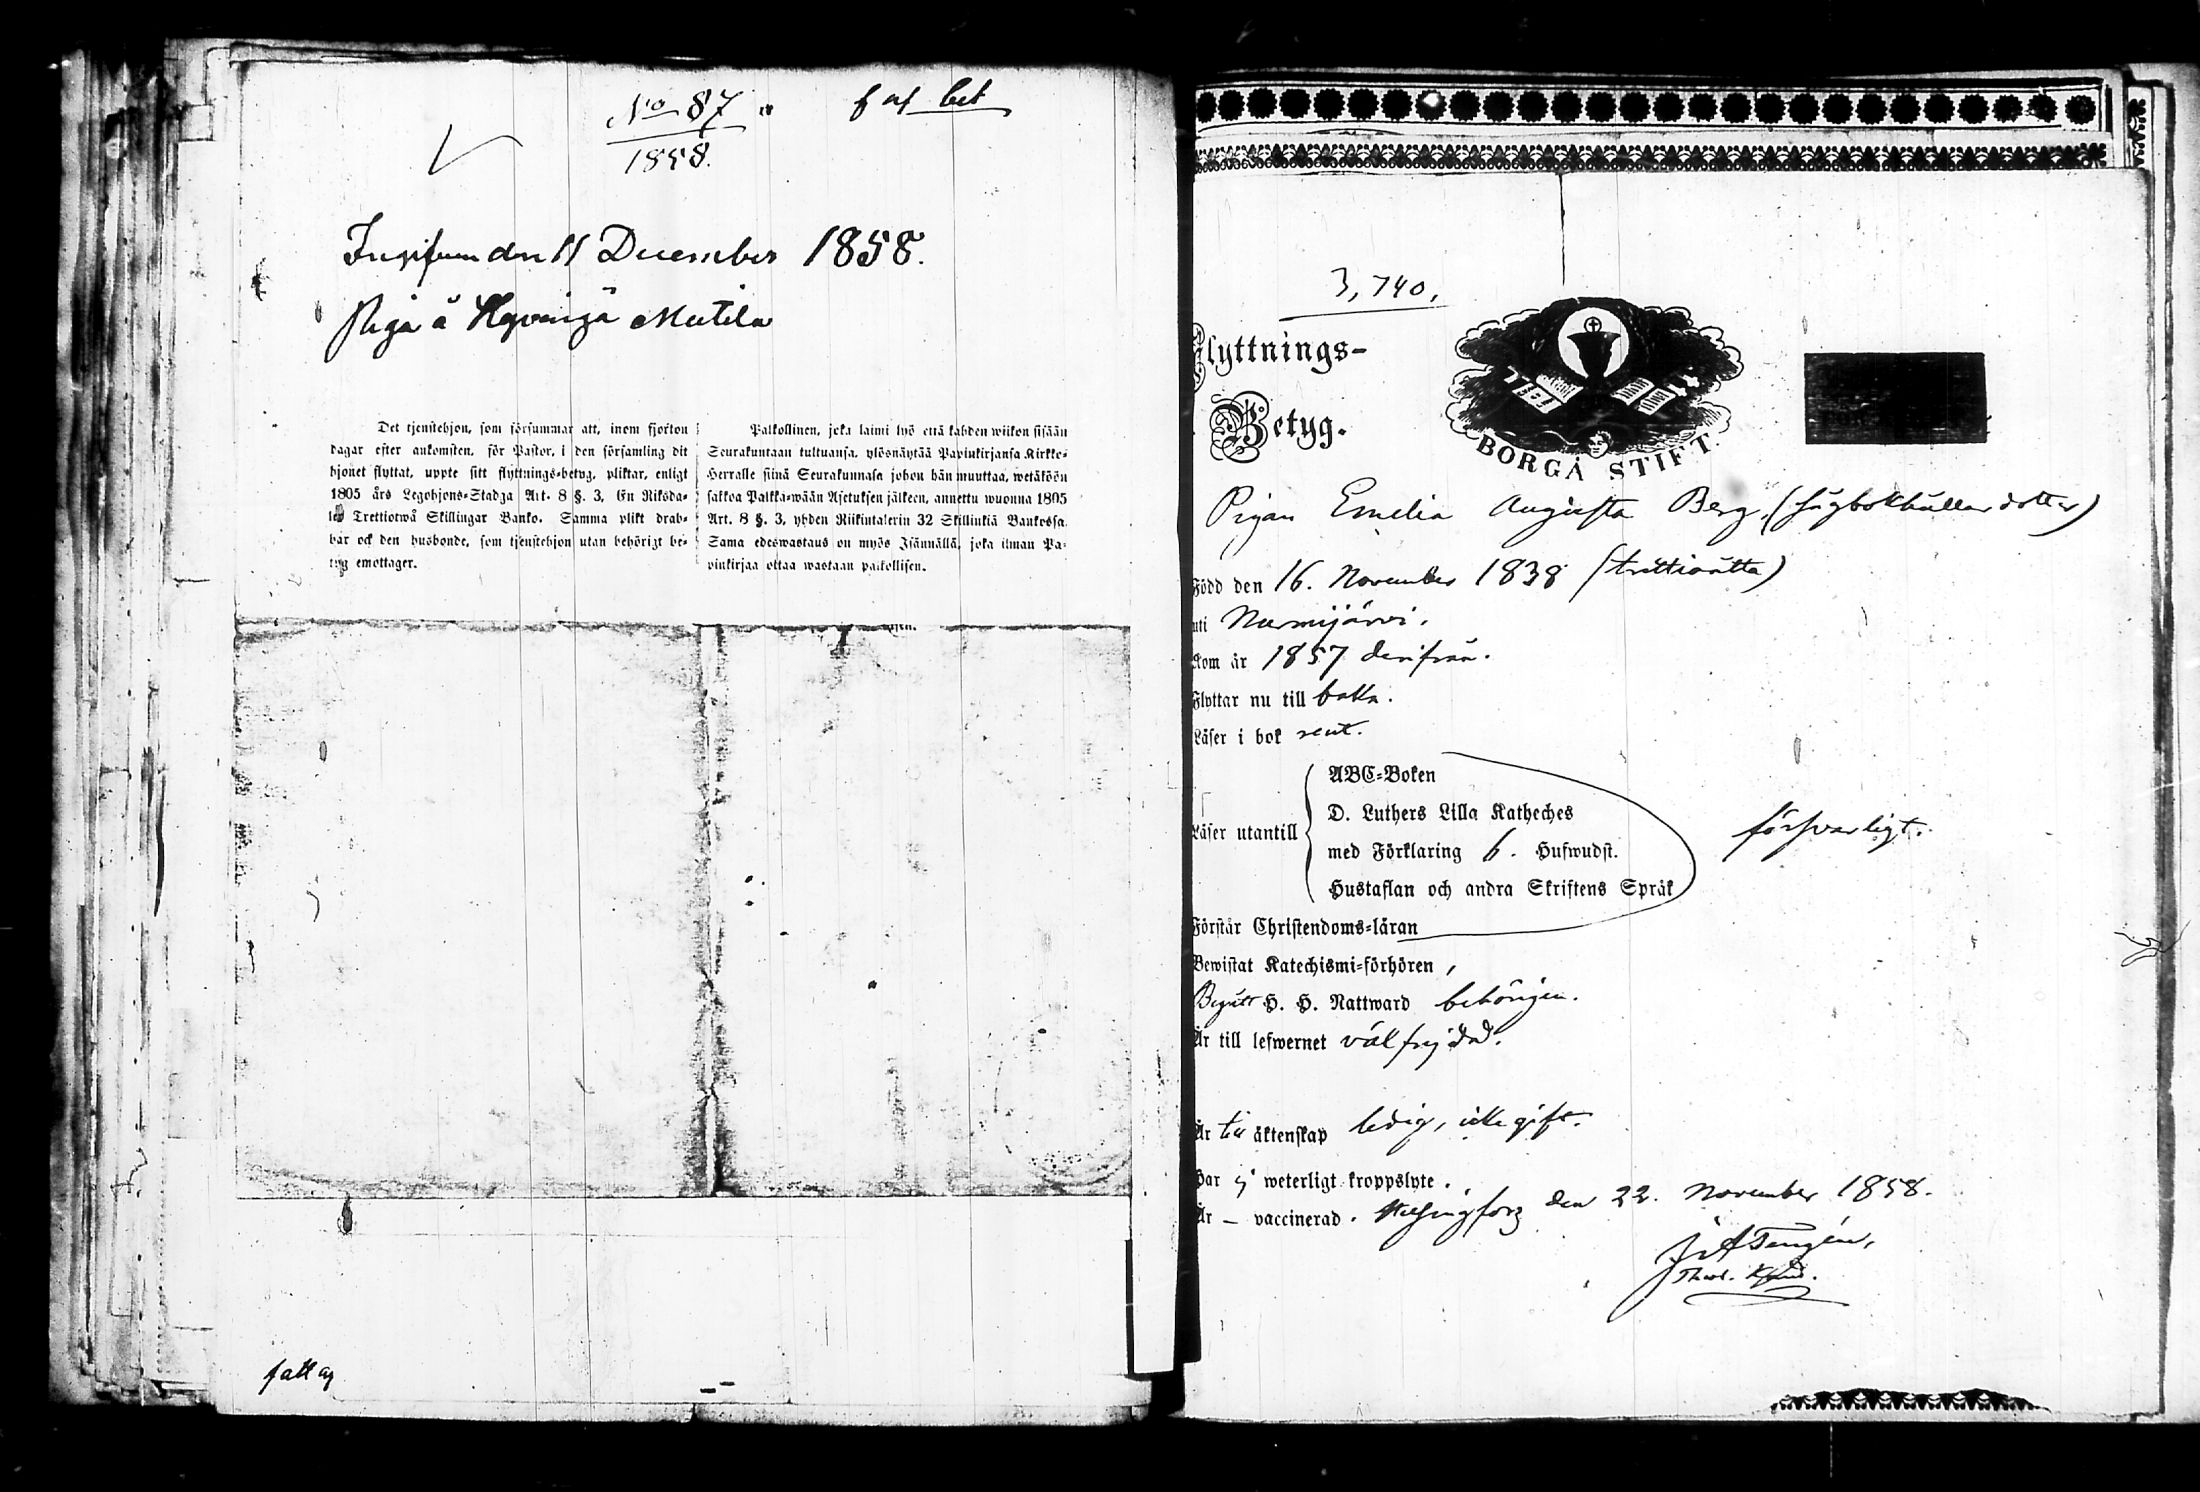 No 87
1858.
Ingifven den 11 December 1858.
Piga å Hyvingä Mutila
Det tjenstehjon, som försummar att, inom fjorton
dagar efter ankomsten, för Pastor, i den församling dit
hjonet flyttat, uppte sitt flyttnings-betyg, pliktar, enligt
1805 års Legohjons-Stadga Art. 8 §. 3, En Riksda-
ler Trettiotwå Skillingar Banko. Samma plikt drab-
bar ock den husbonde, som tjenstehjon utan behörigt be-
tyg emottager.
Palkollinen, joka laimi lyö että kahden wiikon sisään
Seurakuntaan tultuansa, ylösnäytää Papinkirjansa Kirkko-
Herralle siinä Seurakunnasa johon hän muuttaa, wetäköön
sakkoa Palkka-wään Asetuksen jälkeen, annettu wuonna 1805
Art. 8 §. 3, yhden Riikintalerin 32 Skillinkiä Bankossa.
Sama edeswastaus on myös Isännällä, joka ilman Pa-
pinkirjaa ottaa wastaan palkollisen.
3,740,
Flyttnings-
Betyg.
BORGÅ STIFT.
Pigan Emelia Augusta Berg, (Sågbokhållar dotter)
Född den 16. November 1838 (trettioåtta)
uti Nurmijärvi.
Kom år 1857 derifrån.
Flyttar nu till baka.
Läser i bok rent.
ABC-Boken
D. Luthers Lilla Katheches
Läser utantill
med Förklaring 6. Hufwudst.
försvarligt.
Hustaflan och andra Skriftens Språk
Förstår Christendoms-läran
Bewistat Katechismi-förhören,
Begått H. H. Nattward behörigen.
Är till lefwernet välfrejdad.
Är till äktenskap ledig, icke gift.
Har ej weterligt kroppslyte.
Är – vaccinerad. Helsingfors den 22. November 1858.